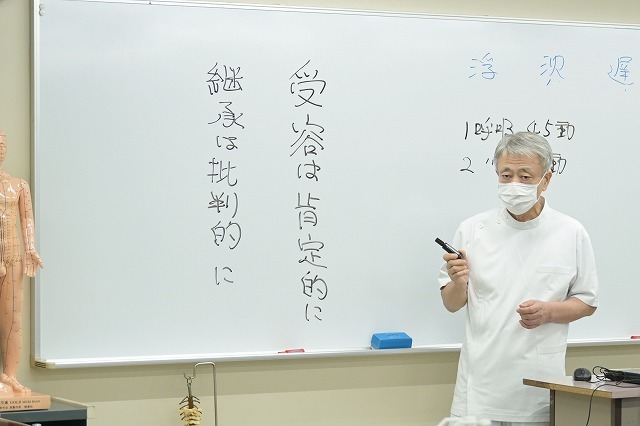 受容は肯定的に
継承は批判的に
浮 沈 遅
1呼吸 45動
2 動